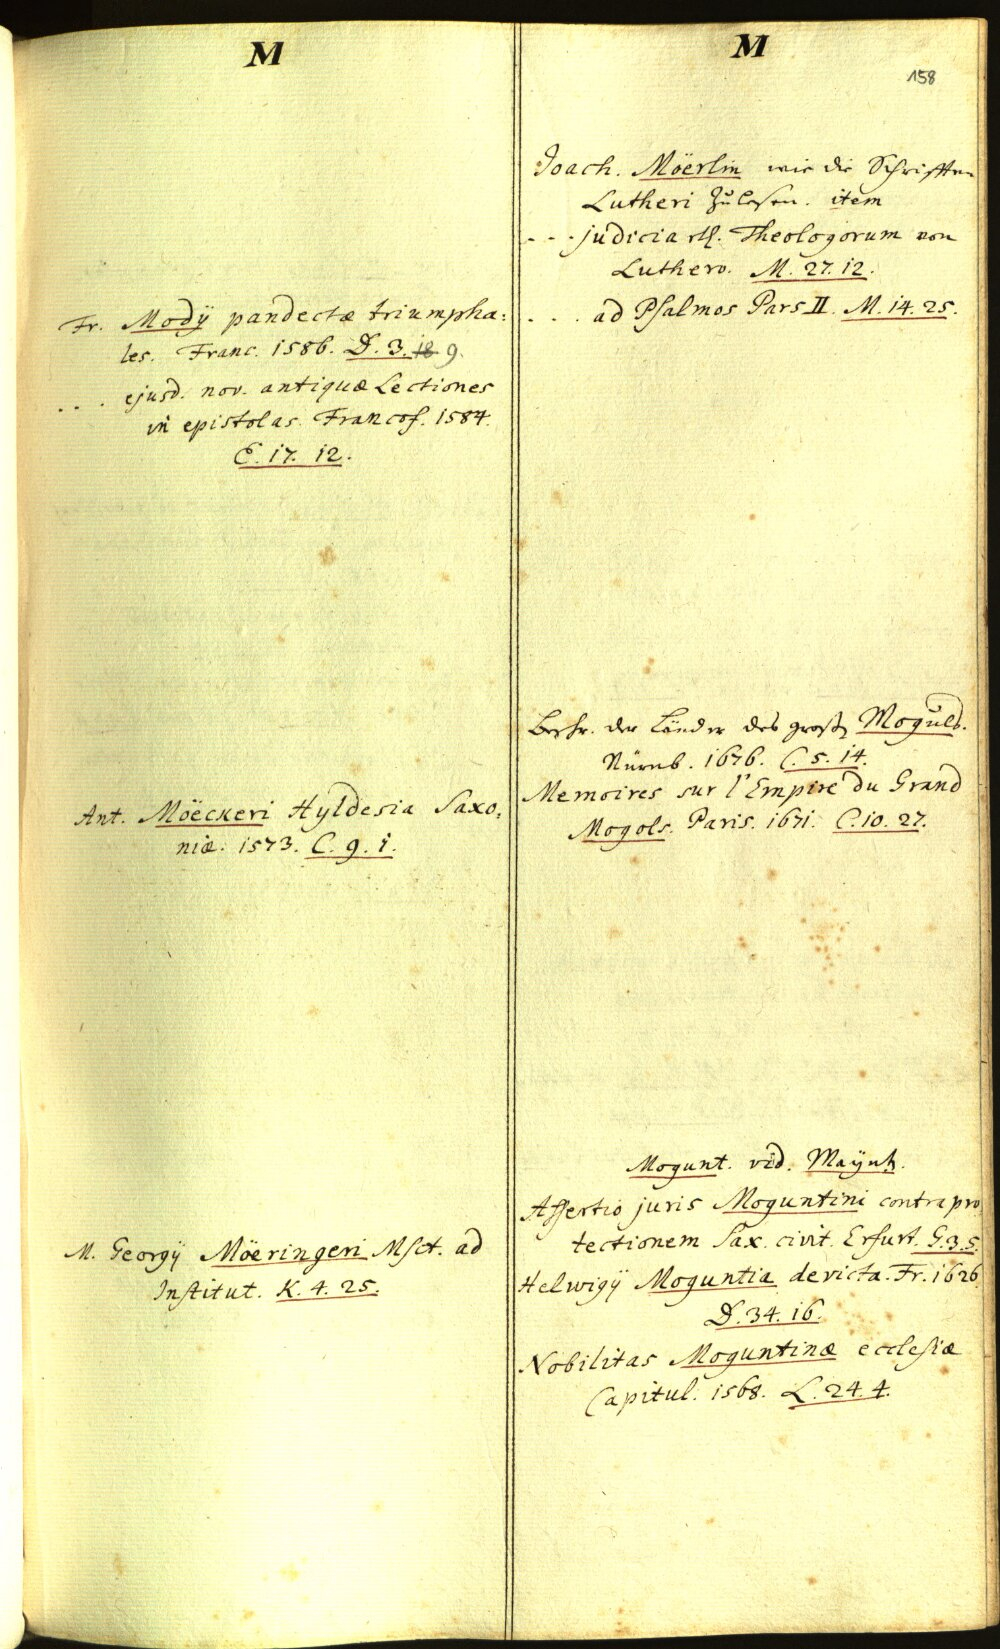 M
Fr. Modÿ pandectæ triumpha:
les. Franc. 1586. D. 3. 18 9.
. . . ejusd. nov. antiquæ Lectiones
in epistolas. Francof. 1584.
E. 17. 12.
Ant. Möeckeri Hyldesia Saxo:
niæ. 1573. C. 9. 1.
M. Georgÿ Möeringeri Msct. ad
Institut. K. 4. 25.
M
158
Joach. Möerlin wie die Schrifften
Lutheri zu lesen. item
- - - judicia Theologorum von
Luthero. M. 27. 12.
. . . ad Psalmos Pars II. M. 14. 25.
Beschr. der Länder des groß Moguls.
Nürnb. 1676. C. 5. 14.
Memoires sur l'Empire du Grand
Mogols. Paris. 1671. C. 10. 27.
Mogunt. vid. Maÿntz.
Assertio juris Moguntini contra pro
tectionem Sax. civit. Erfurt. G. 3. 5.
Helwigÿ Moguntia devicta. Fr. 1626
D. 34. 16.
Nobilitas Moguntinæ ecclesiæ
Capitul. 1568. L. 24. 4.